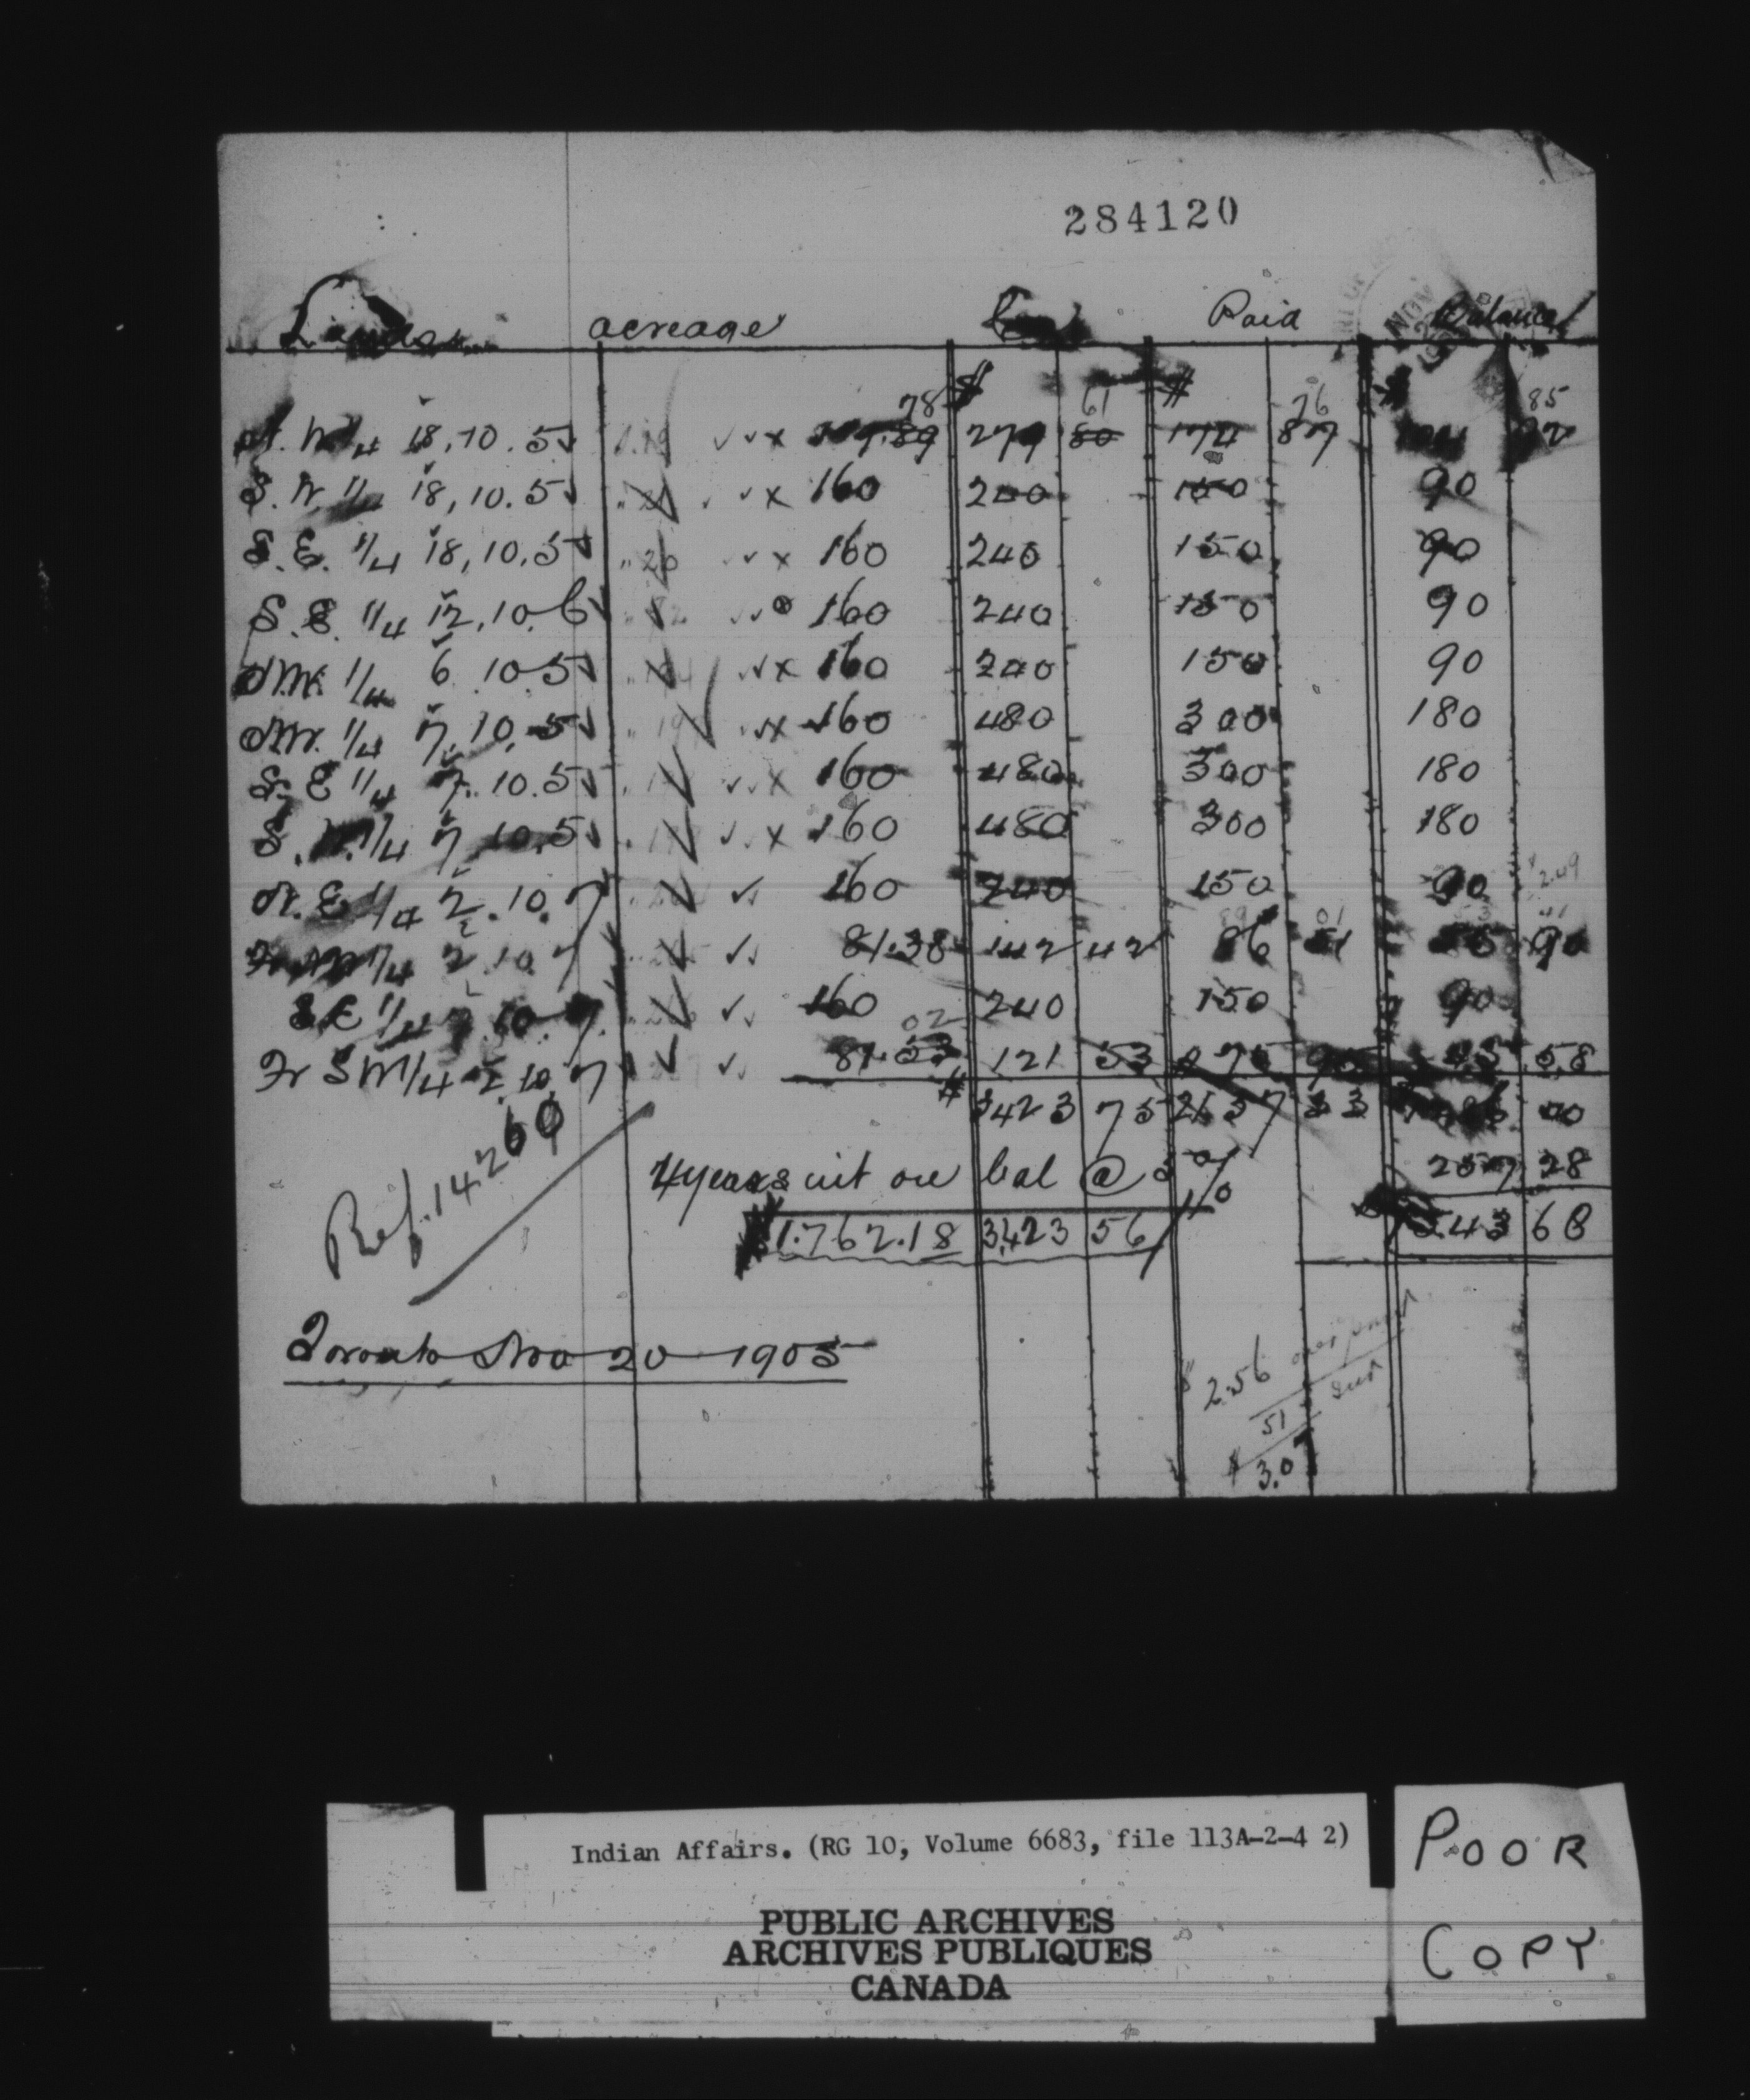 284120
Lands acreage Paid Balance
$ $ $
78 61 26 85
N.W 1/4 18,10.5 89 279 80 174 87
S.W. 1/4 18,10.5 x 160 240 150 90
S.E. 1/4 18,10.5 20 x 160 240 150 90
S.E. 1/4 12,10.6 160 240 150 90
N.W. 1/4 6.10.5 x 160 240 150 90
N.W. 1/4 7.10.5 x 160 480 300 180
S.E 1/4 7.10.5 x 160 480 300 180
S.W. 1/4 7.10.5 x 160 480 300 180
N.E 1/4 2.10.7 160 240 150 90 2.49
01 41
Fr N.W 1/4 2.10.7 81.38 142 42 86 51 90
S E 1/4 2.10.7 160 240 150 90
02
Fr S W 1/4 2.10.7 81.53 121 53 75 95 45 58
$ 3423 75 2137 33
4 years int on bal @ 5 % 257 28
1.762.18 3423 56 1543 68
Ref. 14260
Toronto Nov 20 1905
$ 2.56 over paid
51 int
$ 3.07
NOV
Indian Affairs. (RG 10, Volume 6683, file 113A-2-4 2)
PUBLIC ARCHIVES
ARCHIVES PUBLIQUES
CANADA
POOR
COPY